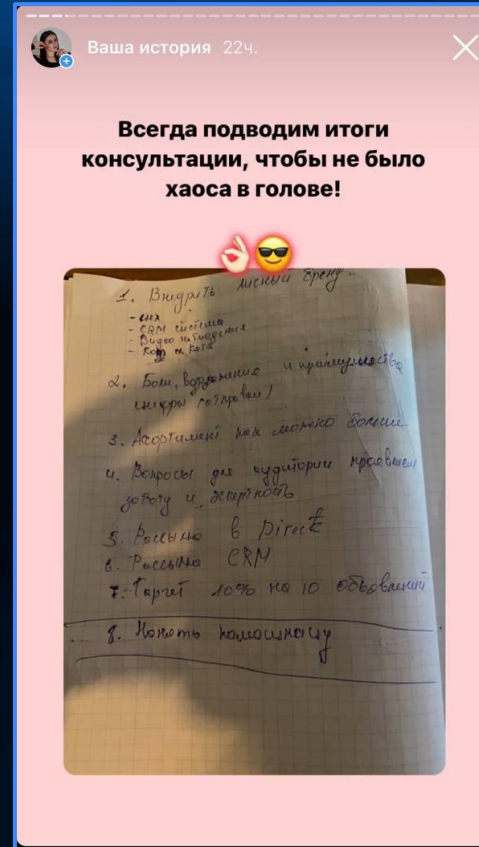 Ваша история 22ч.
Всегда подводим итоги
консультации, чтобы не было
хаоса в голове!
1. Внедрить личный бренд
- CRM система
- Видео наблюдение
2. Боли, возражение и преимущества
3. Асортимент как можно больше
4. Вопросы для аудитории проявляем
заботу и
5. Рассылка в Direct
6. Рассылка CRM
7. Таргет 10% на 10 объявлений
8. Нанять помошницу